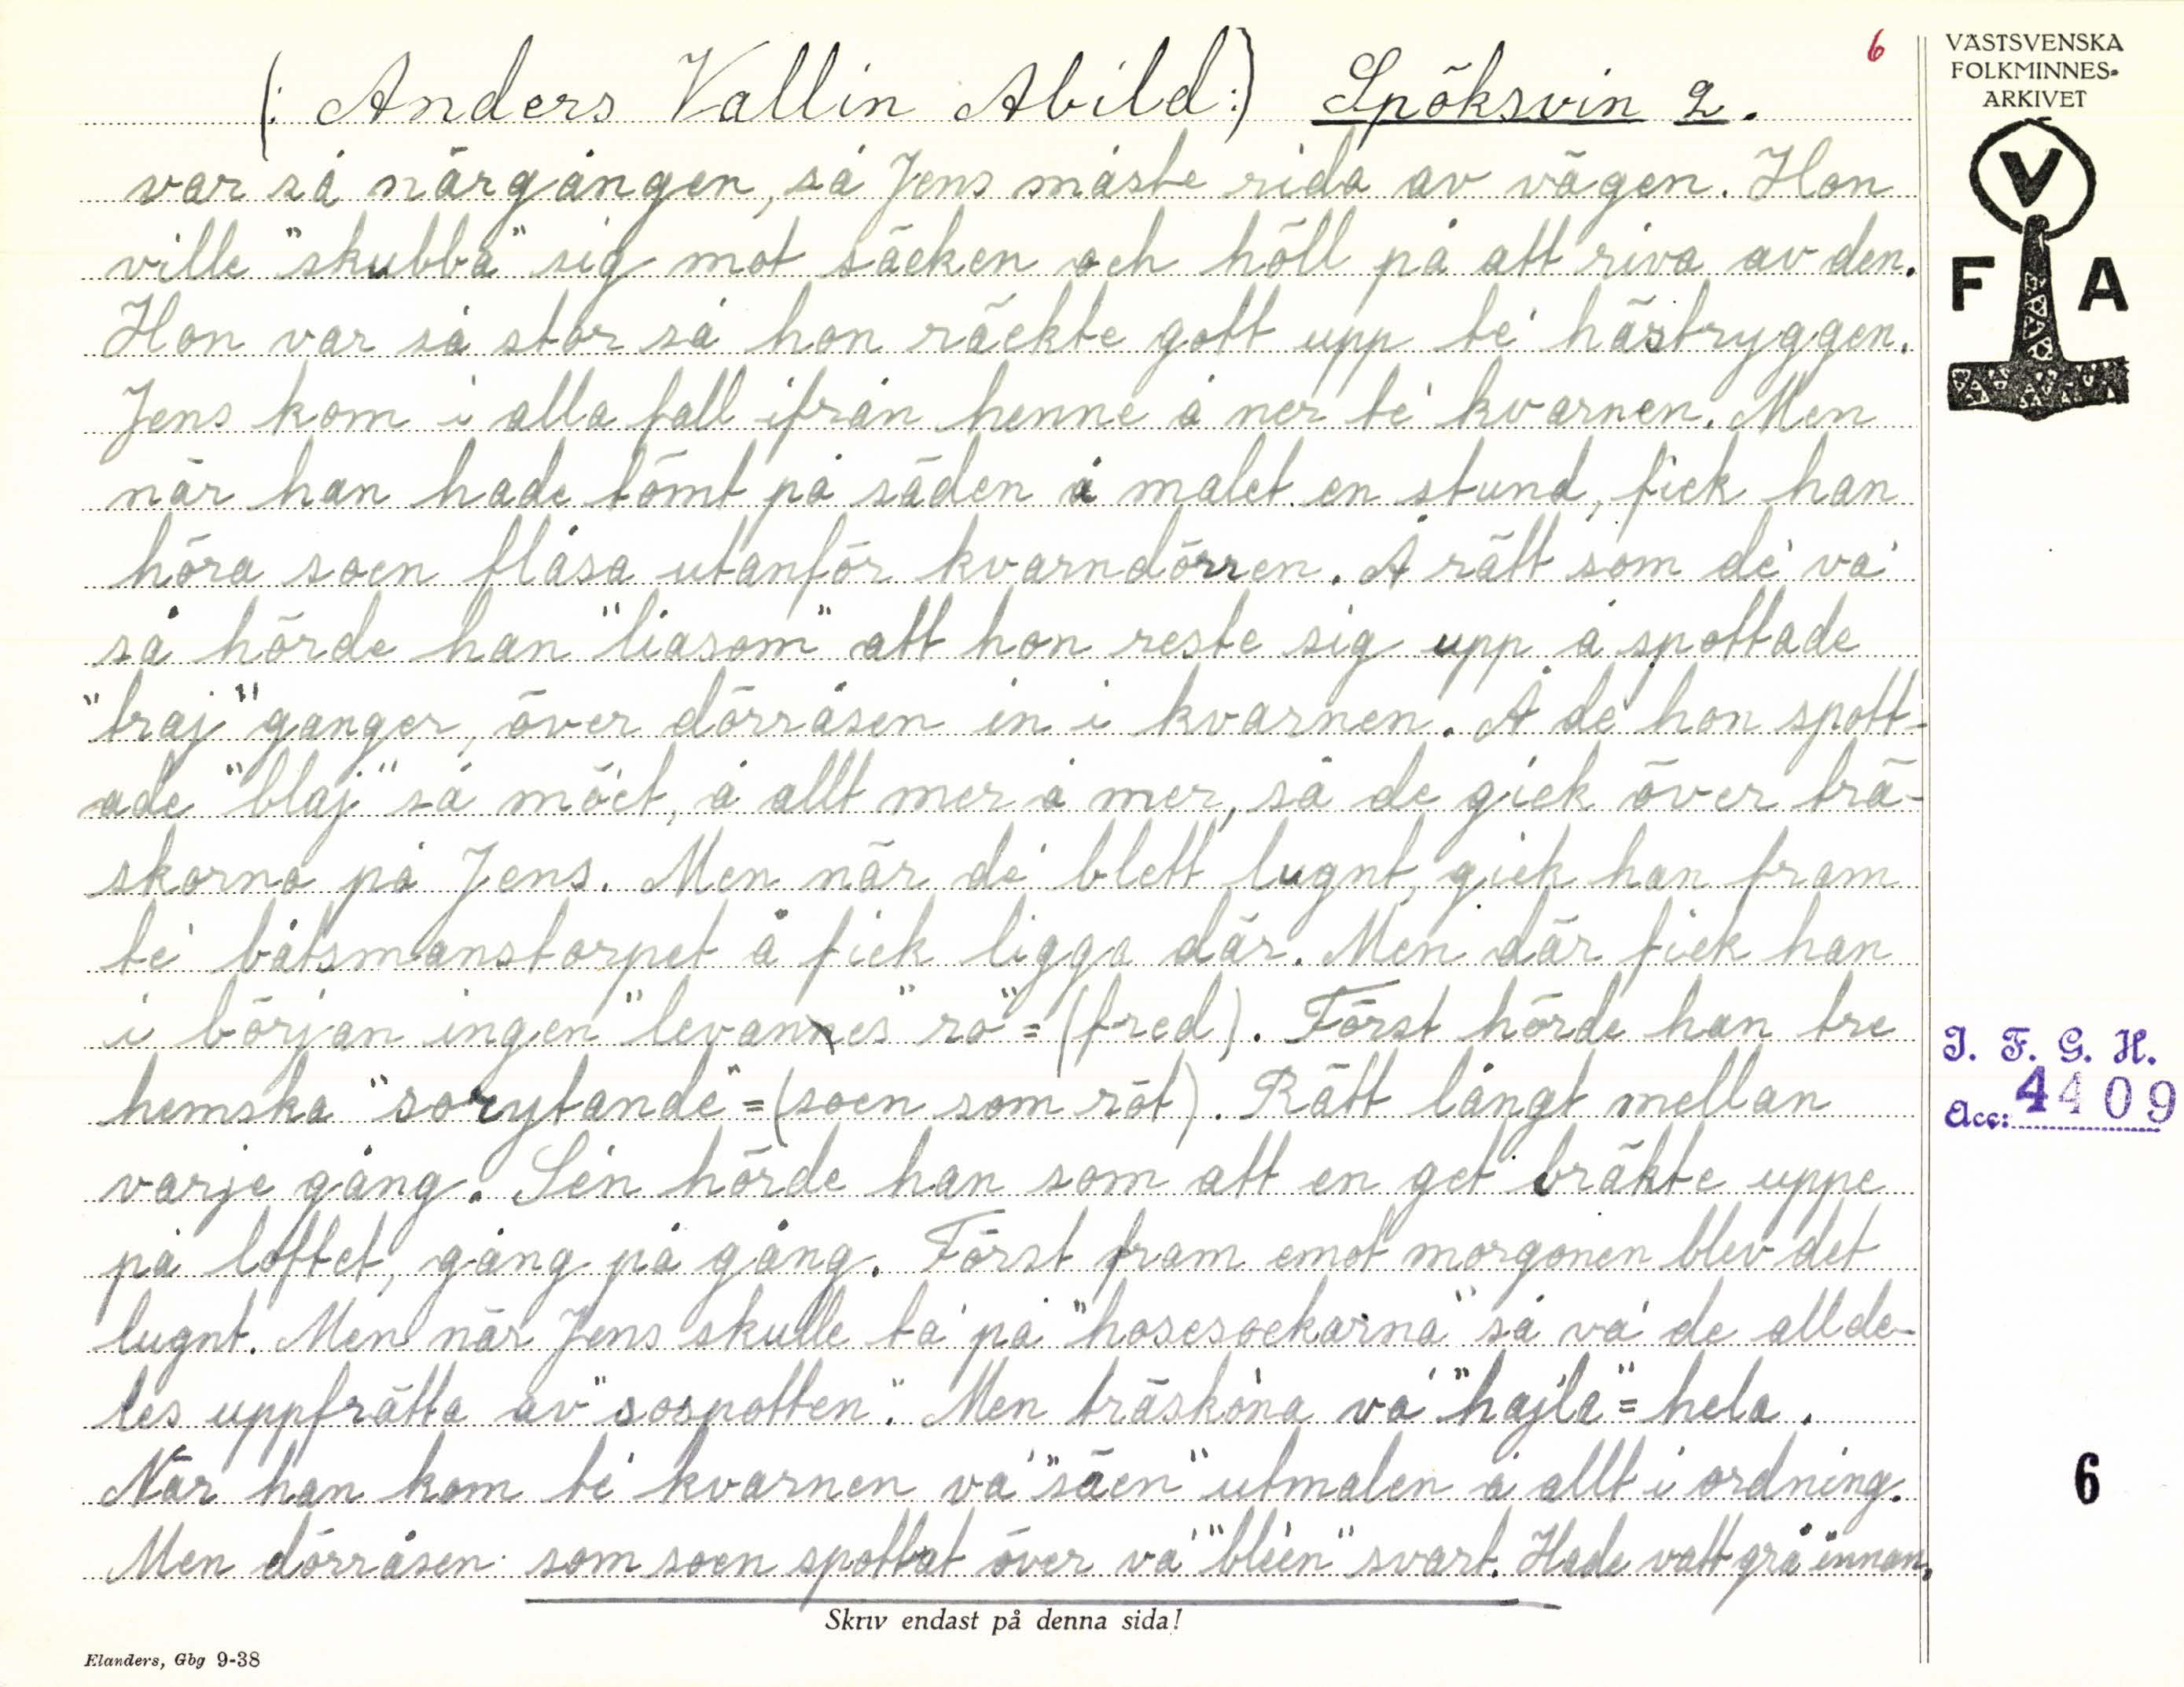 6
(: Anders Vallin Abild:) Spöksvin 2.
var så närgången, så Jens måste rida av vägen. Hon
ville "skubba" sig mot säcken och höll på att riva av den.
Hon var så stor så hon räckte gott upp te' hästryggen.
Jens kom i alla fall ifrån henne å ner te' kvarnen. Men
när han hade tömt på säden å malet en stund, fick han
höra soen flåsa utanför kvarndörren. Å rätt som de' va'
så hörde han "liasom" att hon reste sig upp å spottade
"traj" ganger, över dörråsen in i kvarnen. Å de' hon spott-
ade "blaj" så möet, å allt mer å mer, så de gick över trä-
skorna på Jens. Men när de' blett lugnt, gick han fram
te' båtsmanstorpet å fick ligga där. Men där fick han
i början ingen "levannes" "ro" = (fred). Först hörde han tre
hemska "sorytande" = (soen som röt). Rätt långt mellan
varje gång. Sen hörde han som att en get bräkte uppe
på loftet, gång på gång. Först fram emot morgonen blev det
lugnt. Men när Jens skulle ta' på "hosesockarna" så va' de allde-
les uppfrätta av "sospotten". Men träskona va' "hajla" = hela.
När han kom te' kvarnen va' "säen" utmalen å allt i ordning.
Men dörråsen som soen spottat över va' "bleen" svart. Hade vatt grå innan.
Skriv endast på denna sida!
Elanders, Gbg 9-38
VÄSTSVENSKA
FOLKMINNES-
ARKIVET
V
F A
I. F. G. H.
Acc: 4409
6